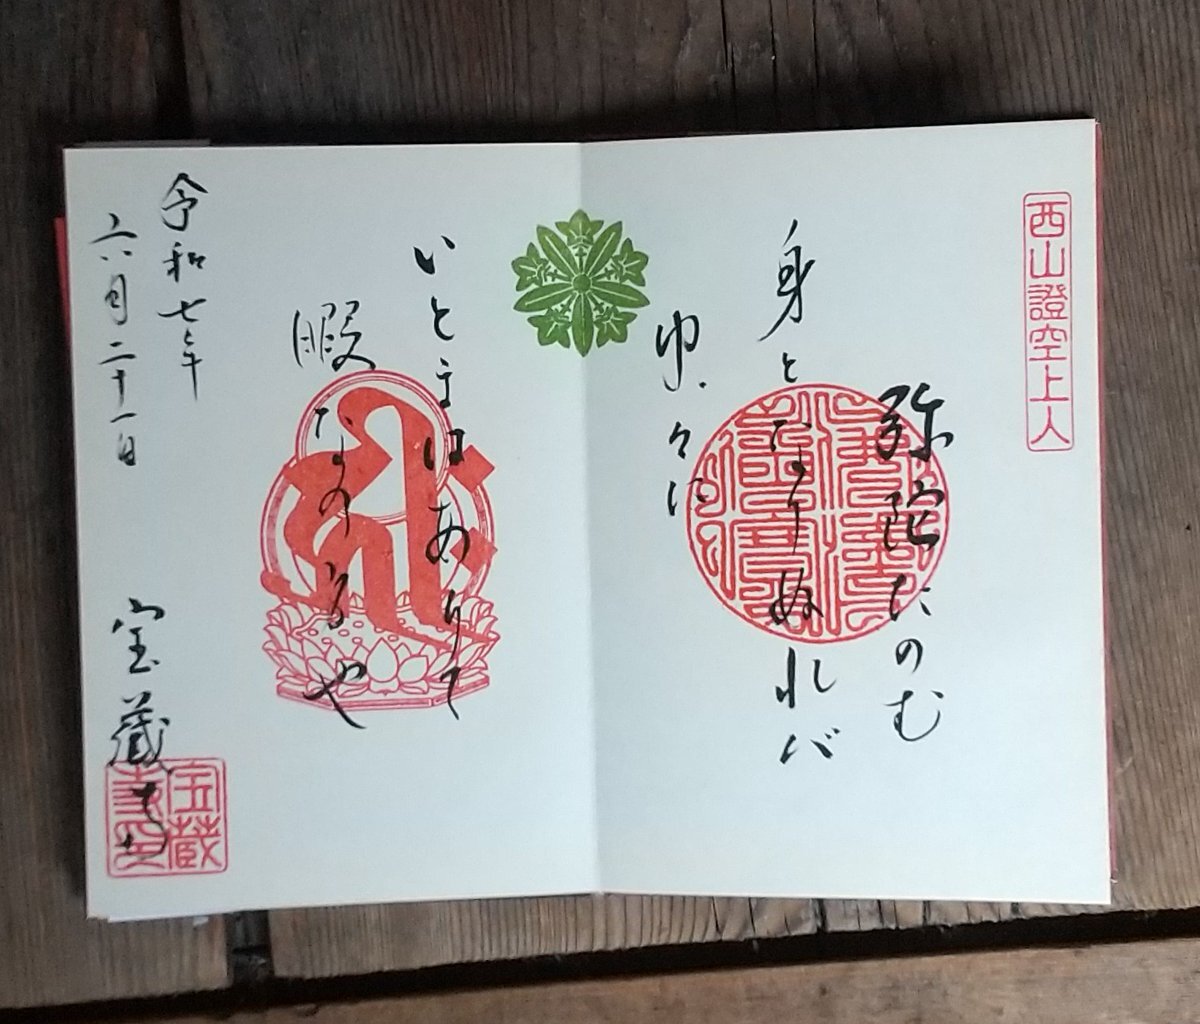 西山證空上人
弥陀たのむ
身となりぬれバ
中々に
いとまはありて
暇なの身や
令和七年
六月二十一日
宝蔵寺
佛法僧寶
宝蔵寺印